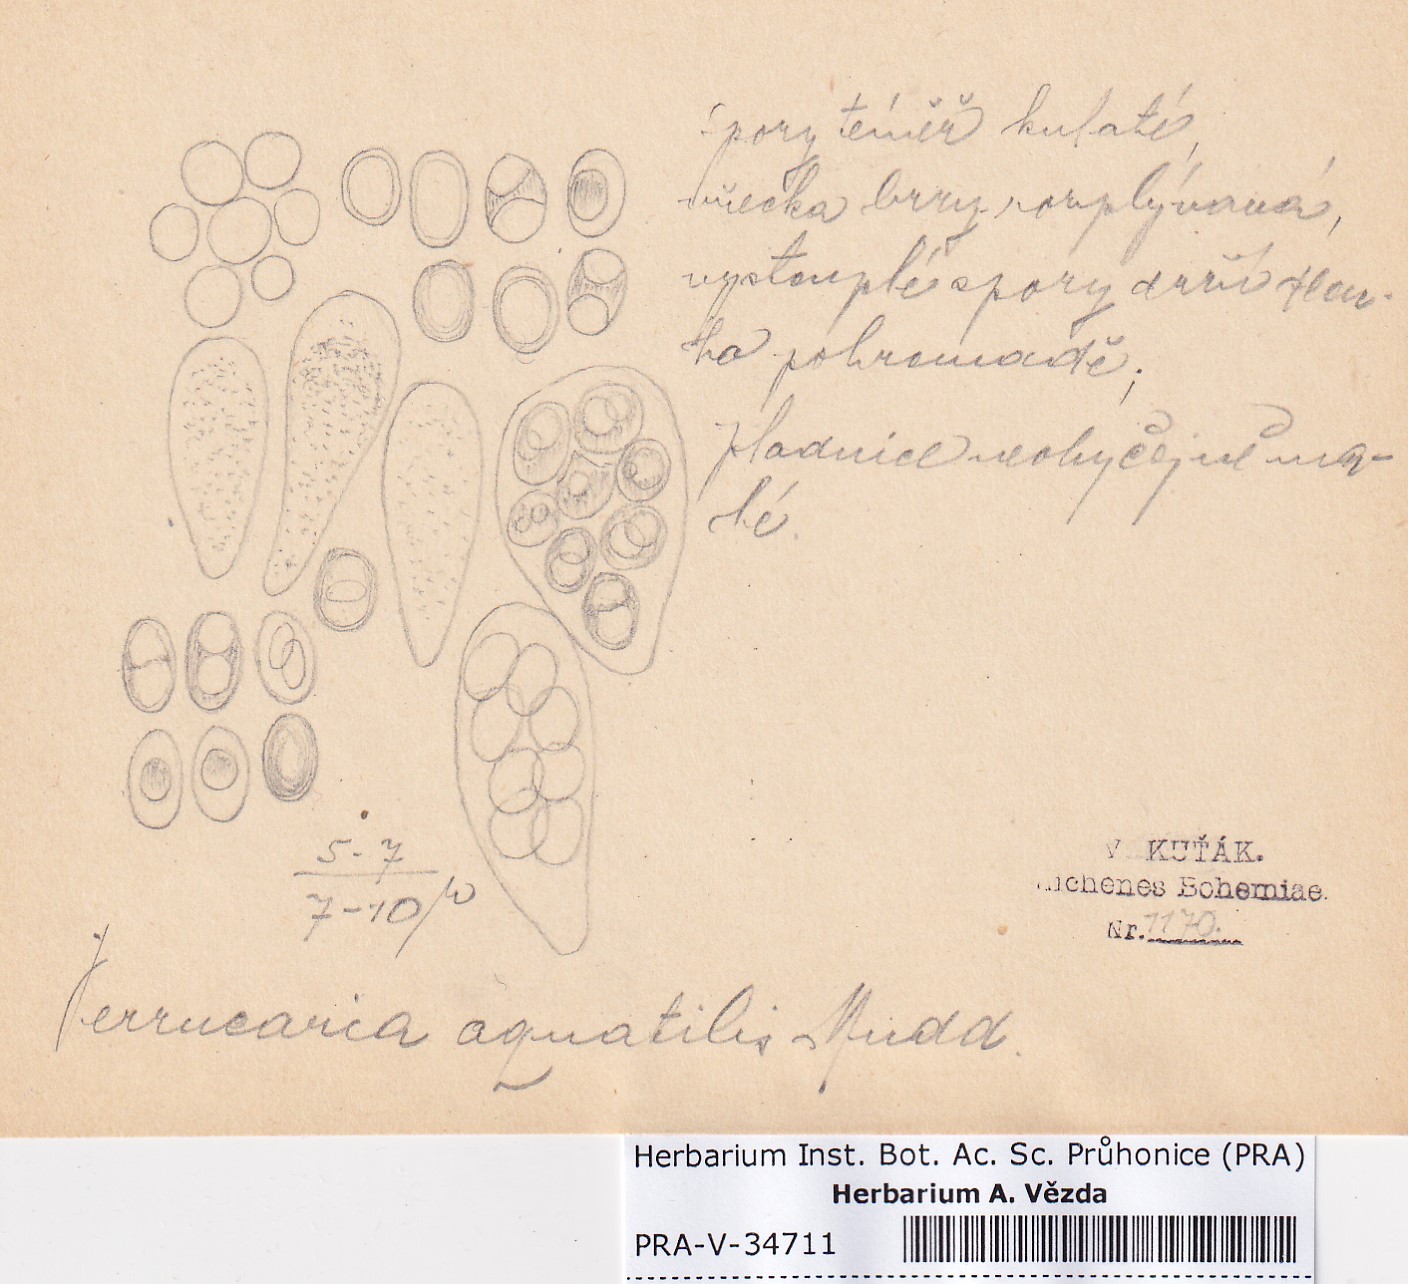 Spory téměř kulaté,
vřecka brzy rozplývavá,
vystouplé spory drží dlou-
ho pohromadě;
plodnice neobyčejně ma-
lé.
5-7
7-10 µ
Verrucaria aquatilis Mudd.
V. KUŤÁK.
Lichenes Bohemiae.
Nr. 1170.
Herbarium Inst. Bot. Ac. Sc. Průhonice (PRA)
Herbarium A. Vězda
PRA-V-34711